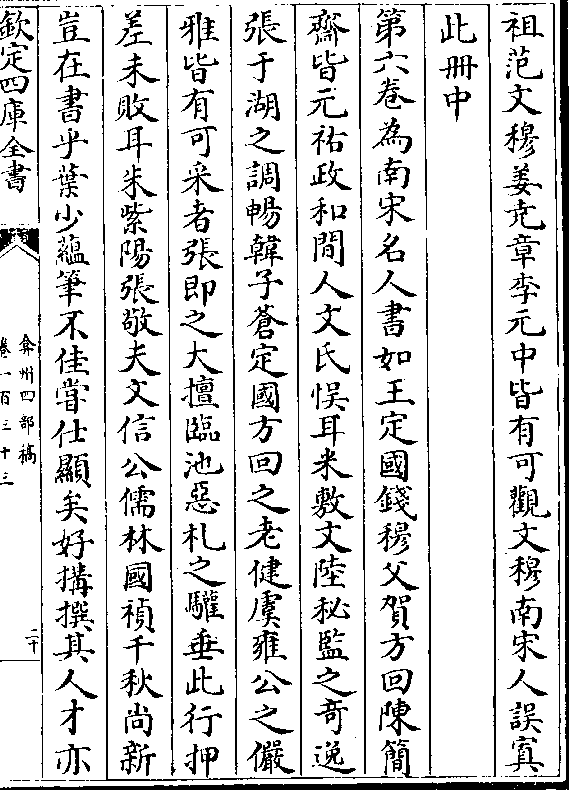 祖范文穆姜尭章李元中皆有可觀文穆南宋人誤寘
此冊中
第六卷為南宋名人書如王定國錢穆父賀方回陳簡
齋皆元祐政和間人文氏悞耳米敷文陸秘監之奇逸
張于湖之調暢韓子蒼定國方回之老健虞雍公之儼
雅皆有可采者張即之大擅臨池惡札之驩垂此行押
差未敗耳朱紫陽張敬夫文信公儒林國禎千秋尚新
豈在書乎葉少蘊筆不佳嘗仕顯矣好搆撰其人才亦
欽定四庫全書
弇州四部稿
卷一百三十三
二十